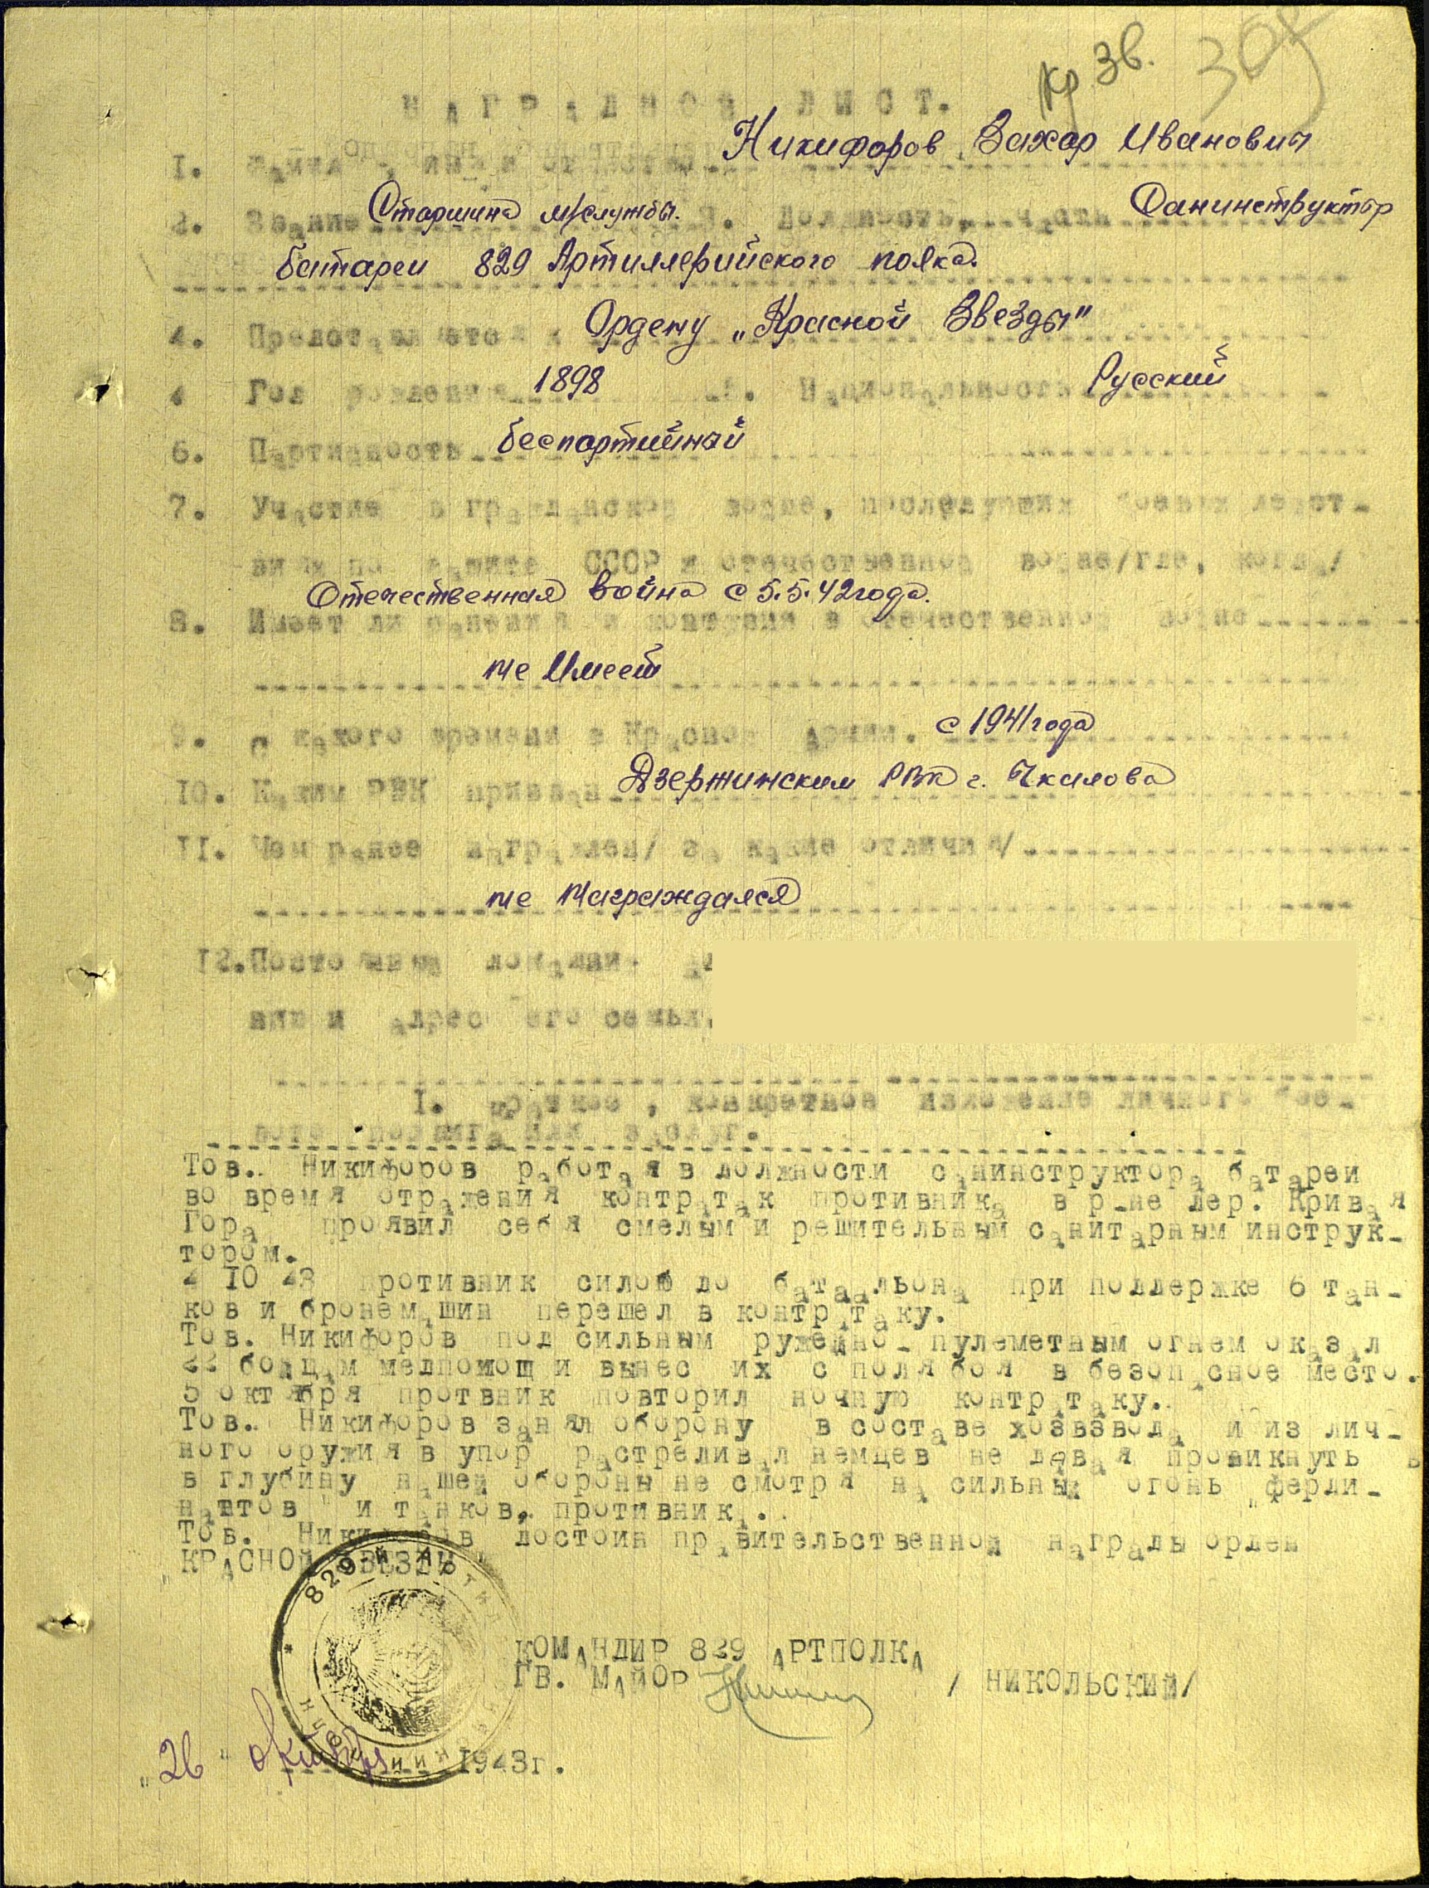 Кр Зв.
НАГРАДНОЙ ЛИСТ.
1. Фамилия, имя и отчество Никифоров Захар Иванович
2. Звание Старшина м/службы. 3. Должность, часть Санинструктор
батареи 829 Артиллерийского полка.
4. Представляется к Ордену „Красной Звезды"
4 Год рождения 1898 5. Национальность Русский
6. Партийность беспартийный
7. Участие в гражданской войне, последующих боевых дейст-
виях по защите СССР и отечественной войне/где, когда/
Отечественная война с 5.5.42 года.
8. Имеет ли ранения и контузии в отечественной войне
не Имеет
9. С какого времени в Красной Армии. с 1941 года
10. Каким РВК призван Дзержинским РВК г. Чкалова
11. Чем ранее награжден/ за какие отличия/
не Награждался
12. Постоянный домашний
и адрес его семьи.
1. Краткое, конкретное изложение личного бое-
вого подвига или заслуг.
Тов.. Никифоров работая в должности санинструктора батареи
во время отражения контратак противника в р-не дер. Кривая
Гора проявил себя смелым и решительным санитарным инструк-
тором.
4 10 43 противник силою до батаальона при поддержке 6 тан-
ков и бронемашин перешел в контратаку.
Тов. Никифоров под сильным ружейно-пулеметным огнем оказал
22 бойцам медпомощ и вынес их с поля боя в безопасное место.
5 октября протвник повторил ночную контратаку.
Тов.. Никифоров занял оборону в составе хозвзвода и из лич-
ного оружия в упор растреливал немцев не давая проникнуть в
в глубину нашей обороны не смотря на сильный огонь „ферди-
нантов" и танков, противника.
Тов. Никифоров достоин правительственной награды орден
„КРАСНОЙ ЗВЕЗДЫ"
829-й АРТИЛ
КОМАНДИР 829 АРТПОЛКА
ГВ. МАЙОР / НИКОЛЬСКИЙ/
„26" октября 1943г.